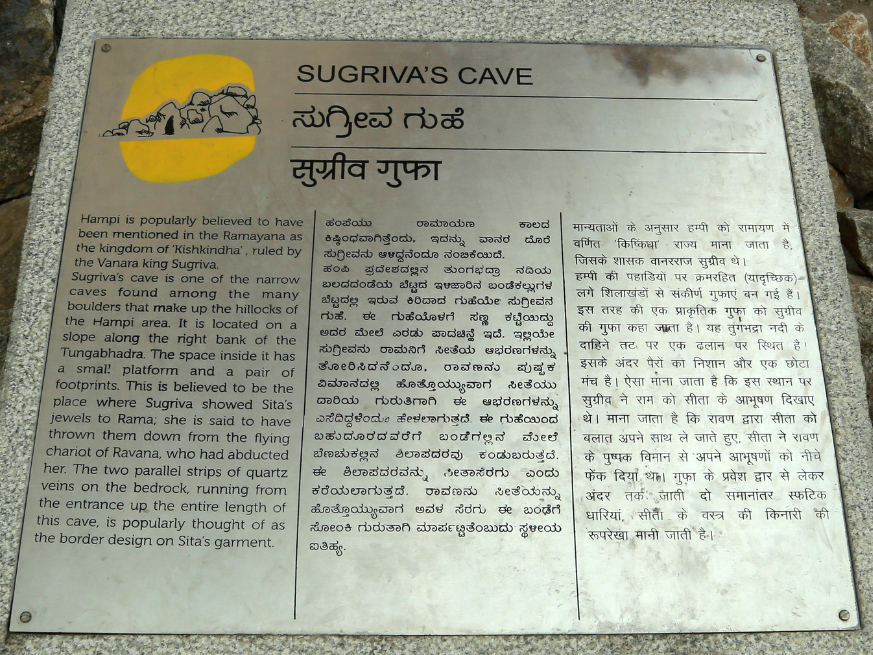 SUGRIVA'S CAVE
ಸುಗ್ರೀವ ಗುಹೆ
सुग्रीव गुफा
Hampi is popularly believed to have
been mentioned in the Ramayana as
the kingdom of 'Kishkindha', ruled by
the Vanara king Sugriva.
Sugriva's cave is one of the narrow
caves found among the many
boulders that make up the hillocks of
the Hampi area. It is located on a
slope along the right bank of the
Tungabhadra. The space inside it has
a small platform and a pair of
footprints. This is believed to be the
place where Sugriva showed Sita's
jewels to Rama; she is said to have
thrown them down from the flying
chariot of Ravana, who had abducted
her. The two parallel strips of quartz
veins on the bedrock, running from
the entrance up the entire length of
this cave, is popularly thought of as
the border design on Sita's garment.
ಹಂಪೆಯು ರಾಮಾಯಣ ಕಾಲದ
ಕಿಷ್ಕಿಂಧವಾಗಿತ್ತೆಂದು, ಇದನ್ನು ವಾನರ ದೊರೆ
ಸುಗ್ರೀವನು ಆಳಿದ್ದನೆಂದೂ ನಂಬಿಕೆಯಿದೆ.
ಹಂಪಿ ಪ್ರದೇಶದಲ್ಲಿನ ತುಂಗಭದ್ರಾ ನದಿಯ
ಬಲದಂಡೆಯ ಬೆಟ್ಟದ ಇಳಿಜಾರಿನ ಬಂಡೆಕಲ್ಲುಗಳ
ಬೆಟ್ಟದಲ್ಲಿ ಇರುವ ಕಿರಿದಾದ ಗುಹೆಯೇ ಸುಗ್ರೀವನ
ಗುಹೆ. ಈ ಗುಹೆಯೊಳಗೆ ಸಣ್ಣ ಕಟ್ಟೆಯಿದ್ದು
ಅದರ ಮೇಲೆ ಎರಡು ಪಾದಚಿನ್ಹೆ ಇದೆ. ಇಲ್ಲಿಯೇ
ಸುಗ್ರೀವನು ರಾಮನಿಗೆ ಸೀತೆಯ ಆಭರಣಗಳನ್ನು
ತೋರಿಸಿದನೆಂದೂ, ರಾವಣನು ಪುಷ್ಪಕ
ವಿಮಾನದಲ್ಲಿ ಹೊತ್ತೊಯ್ಯುವಾಗ ಸೀತೆಯು
ದಾರಿಯ ಗುರುತಿಗಾಗಿ ಈ ಆಭರಣಗಳನ್ನು
ಎಸೆದಿದ್ದಳೆಂದೂ ಹೇಳಲಾಗುತ್ತದೆ. ಈ ಗುಹೆಯಿಂದ
ಬಹುದೂರದವರೆಗೆ ಬಂಡೆಗಲ್ಲಿನ ಮೇಲೆ
ಬೆಣಚುಕಲ್ಲಿನ ಶಿಲಾಪದರವು ಕಂಡುಬರುತ್ತದೆ.
ಈ ಶಿಲಾಪದರವನ್ನು ಸೀತಾಸೆರಗು ಎಂದು
ಕರೆಯಲಾಗುತ್ತದೆ. ರಾವಣನು ಸೀತೆಯನ್ನು
ಹೊತ್ತೊಯ್ಯುವಾಗ ಅವಳ ಸೆರಗು ಈ ಬಂಡೆಗೆ
ಸೋಂಕಿ ಗುರುತಾಗಿ ಮಾರ್ಪಟ್ಟಿತೆಂಬುದು ಸ್ಥಳೀಯ
ಐತಿಹ್ಯ.
मान्यताओं के अनुसार हम्पी को रामायण में
वर्णित 'किष्किंधा' राज्य माना जाता है,
जिसके शासक वानरराज सुग्रीव थे।
हम्पी की पहाडियों पर क्रमरहित (यादृच्छिक)
लगे शिलाखंडों से संकीर्ण गुफाएं बन गई हैं।
इस तरह की एक प्राकृतिक गुफा को सुग्रीव
की गुफा कहा जाता है। यह तुंगभद्रा नदी के
दाहिने तट पर एक ढलान पर स्थित है।
इसके अंदर पैरों का निशान और एक छोटा
मंच है। ऐसा माना जाता है कि इस स्थान पर
सुग्रीव ने राम को सीता के आभूषण दिखाए
थे। माना जाता है कि रावण द्वारा सीता को
बलात अपने साथ ले जाते हुए, सीता ने रावण
के पुष्पक विमान से अपने आभूषणों को नीचे
फेंक दिया था। गुफा के प्रवेश द्वार से लेकर
अंदर तक जाती दो समानांतर स्फटिक
धारियां, सीता के वस्त्र की किनारी की
रूपरेखा मानी जाती है।